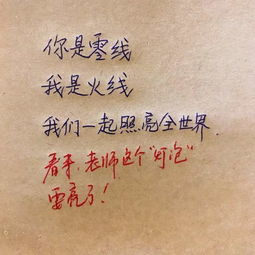 你是零线
我是火线
我们一起照亮全世界.
看来,老师这个“灯泡”
要亮了!